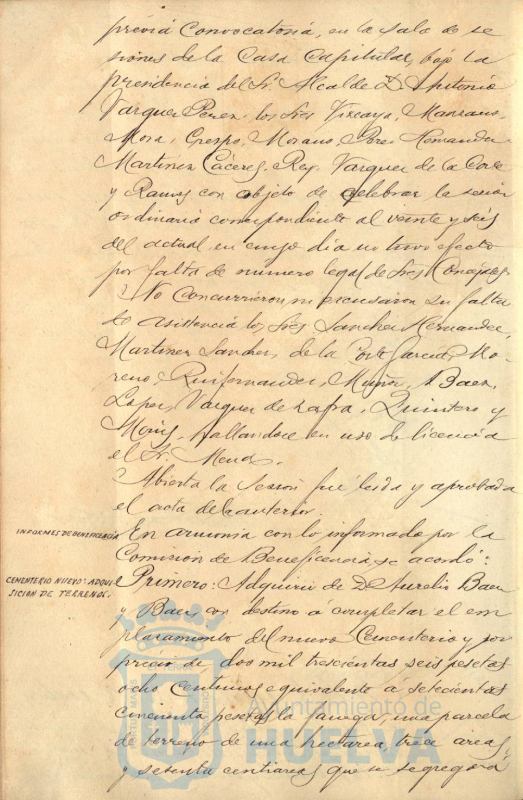 previa Convocatoria, en la sala de se
siones de la Casa Capitular, bajo la
presidencia del Sr. Alcalde D. Antonio
Vazquez Perez, los Sres Vizcaya, Manzano,
Mora, Crespo, Morano, Perez Hernandez
Martinez Cáceres, Rey, Vazquez de la Corte
y Ramos con objeto de celebrar la sesion
ordinaria correspondiente al veinte y seis
del actual en cuyo dia no tuvo efecto
por falta de número legal de Sres Concejales
No concurrieron ni excusaron su falta
de asistencia los Sres Sanchez Hernandez,
Martinez Sanchez, de la Corte Garcia, Mo-
reno, Ruifernandez, Muñoz, Baez,
Lopez, Vazquez de Zafra, Quintero y
hallandose en uso de licencia
el Sr.
Abierta la Sesion fué leida y aprobada
el acta de la anterior.
INFORMES DE BENEFICENCIA
En armonia con lo informado por la
Comision de Beneficencia, se acordó:
CEMENTERIO NUEVO: ADQUI
SICION DE TERRENOS.
Primero: Adquirir de D. Aurelio Baez
y Baez, con destino á completar el em
plazamiento del nuevo Cementerio y por
precio de dos mil trescientas seis pesetas
ocho centimos equivalente á setecientas
cincuenta pesetas la fanega, una parcela
de terreno de una hectarea, trece areas,
y setenta centiareas que se segregará
Ayuntamiento de
HUELVA